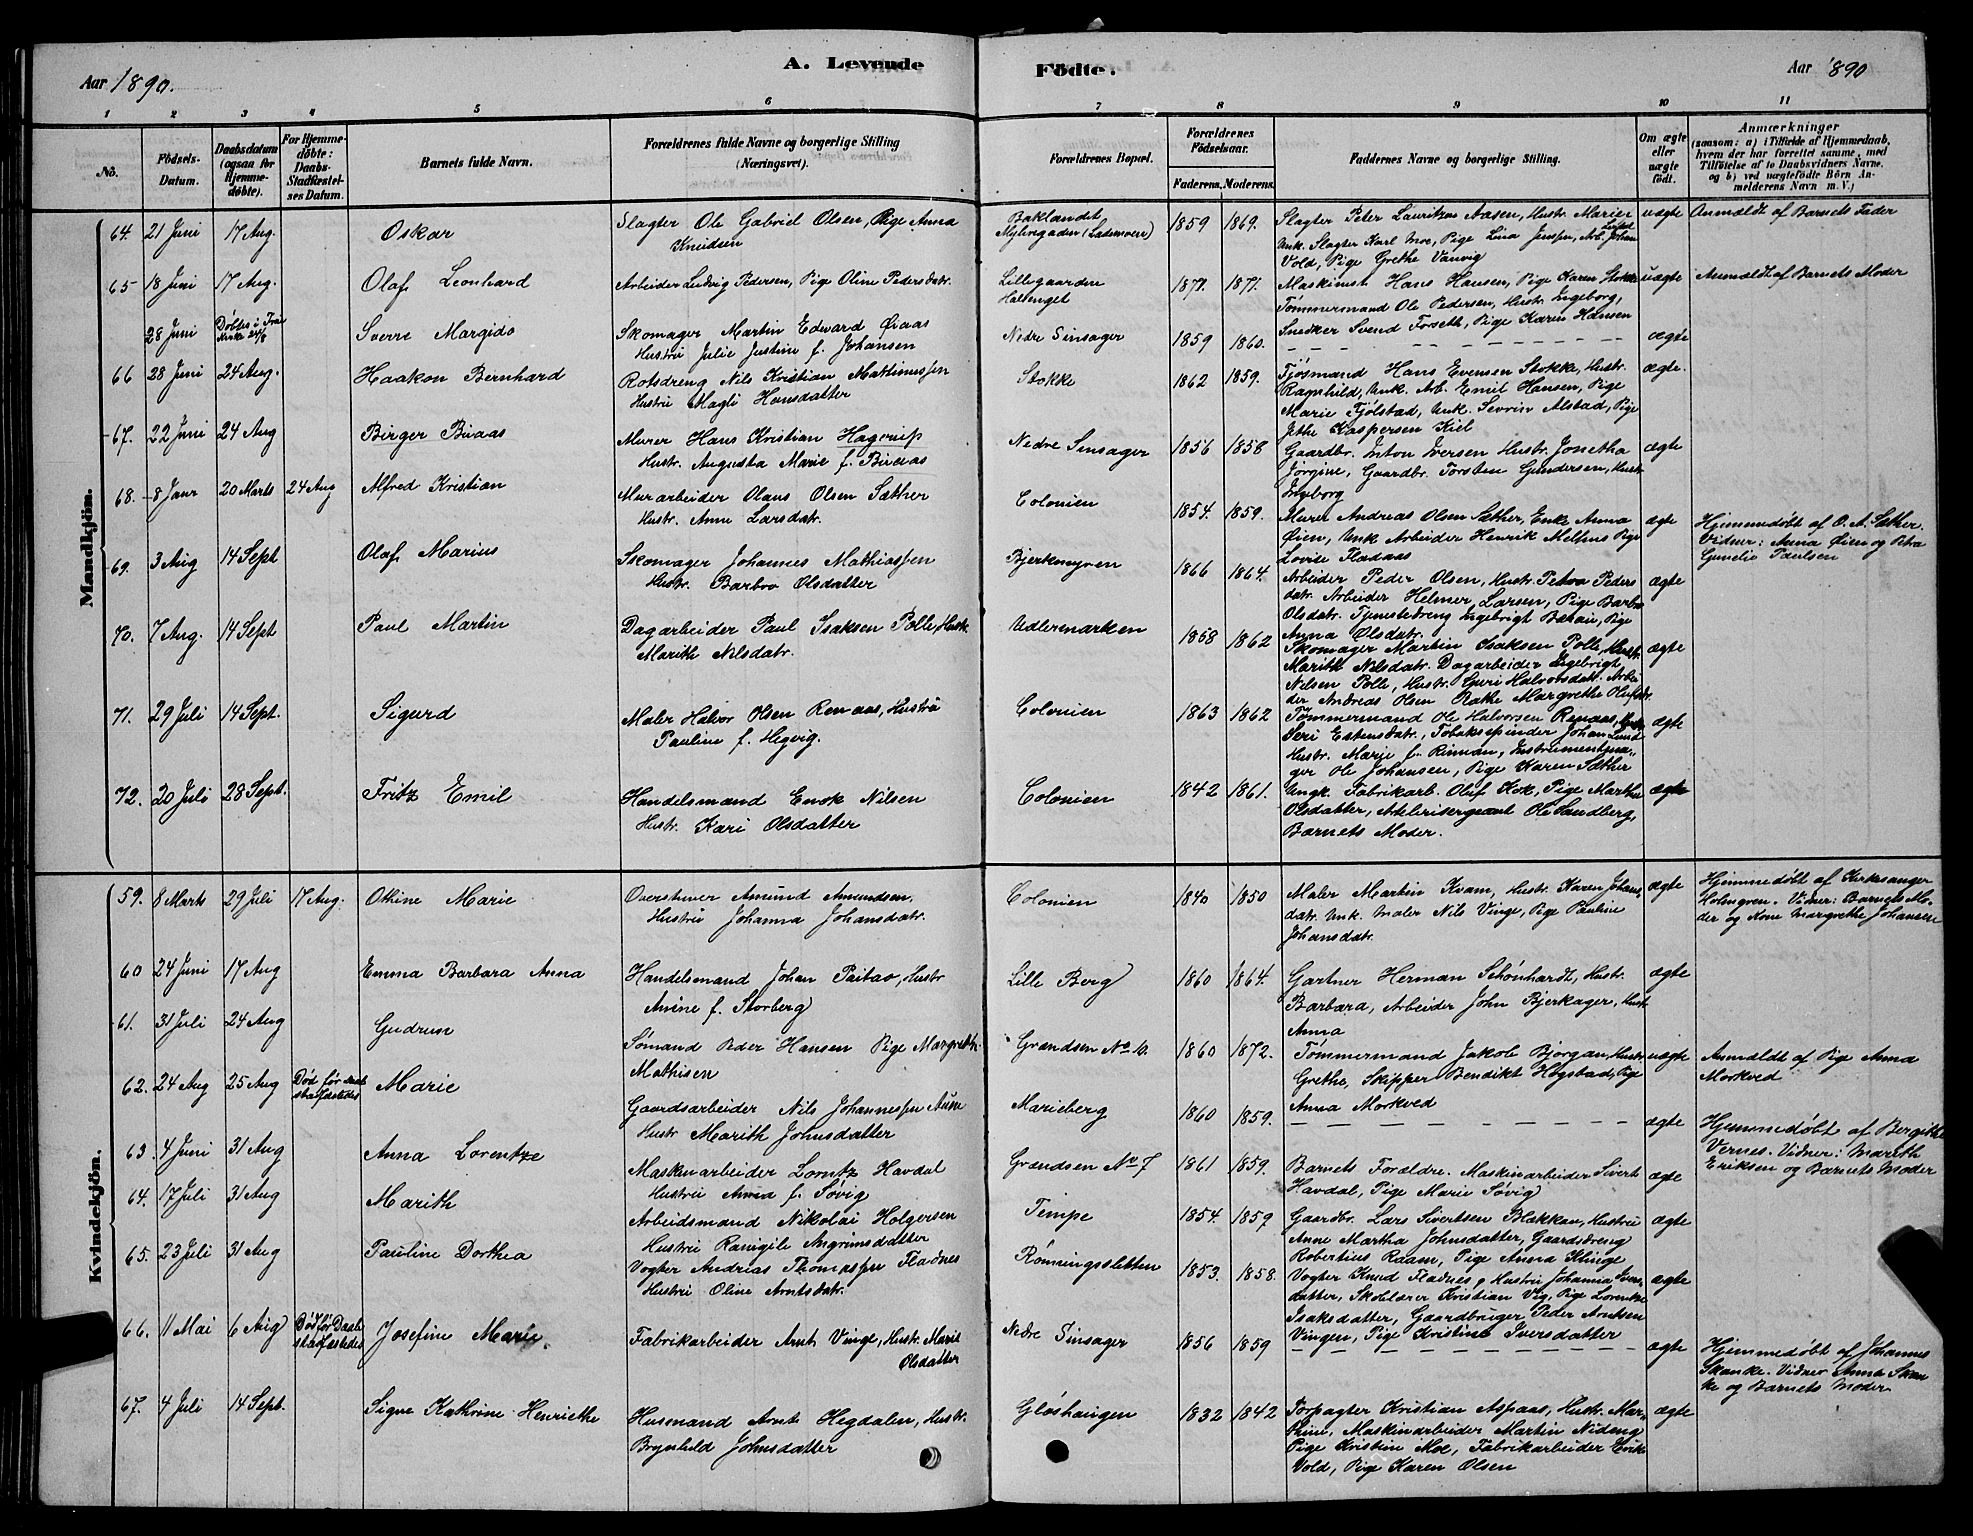 Aar 1890.
A. Levende
Födte.
Aar 1890
1 2 3 4 5 6 7 8 9 10 11
No.
Födsels-
Datum.
Daabsdatum
(ogsaa for
Hjemme-
döbte).
For Hjemme-
döbte:
Daabs-
Stadfæstel-
ses Datum.
Barnets fulde Navn.
Forældrenes fulde Navne og borgerlige Stilling
(Næringsvei).
Forældrenes Bopæl.
Forældrenes
Födselsaar.
Faderens. Moderens.
Faddernes Navne og borgerlige Stilling.
Om ægte
eller
uægte
födt.
Anmærkninger
(saasom: a) i Tilfælde af Hjemmedaab,
hvem der har forrettet samme, med
Tilföielse af to Daabsvidners Navne,
og b) ved uægtefödte Börn An-
melderens Navn m. V.)
Mandkjön.
64. 21 Juni 17 Aug. Oskar
Slagter Ole Gabriel Olsen, Pige Anna
Knudsen
Baklandet
Nybrogaden (Lademoen)
1859 1869.
Slagter Peter Lauritzen Aasen, Hustr. Marie
Unk. Slagter Karl Moe, Pige Lina Jenssen, Arb. Johan
Vold, Pige Grethe Vanvig
uægte
Anmeldt af Barnets Fader
65 18 Juni 17 Aug. Olaf Leonhard
Arbeider Ludvig Pedersen, Pige Oline Pedersdatr.
Lillegaarden
1871.
Maskinist Hans Hansen, Pige Karen Stokke
Tømmermand Ole Pedersen, Hustr. Ingeborg,
Snedker Svend Forseth, Pige Karen Hansen
uægte
Anmeldt af Barnets Moder
28 Juni Døbtes i
24/8
Sverre Margido
Skomager Martin Edward Øiaas
Hustru Julie Justine f. Johansen
Nedre Sinsager
1859 1860.
ægte
66 28 Juni 24 Aug. Haakon Bernhard
Nils Kristian Mathinussen
Hustru Magli Hansdatter
Stokke
1862 1859.
Fjøsmand Hans Evensen Stokke, Hustr.
Ragnhild, Unk. Arb. Emil Hansen, Pige
Marie Fjølstad, Unk. Sevrin Alstad, Pige
Jethe Kaspersen Kiel
ægte.
67. 22 Juni 24 Aug Birger Buaas
Murer Hans Kristian Hagerup
Hustr. Augusta Marie f. Buaas
Nedre Sinsager
1856 1858
Gaardbr. Anton Iversen Hustr. Jonetha
Jørgine, Gaardbr. Torsten Gundersen, Hustr.
Ingeborg
ægte
68. 8 Janr 20 Marts 24 Aug Alfred Kristian
Murarbeider Olaus Olsen Sæther
Hustr. Anne Larsdatr.
Colonien
1854. 1859.
Murer Andreas Olsen Sæther, Enke Anna
Øien, Unk. Arbeider Henrik Pige
Lovise Fladaas
ægte
Hjemmedøbt af O. A. Sæther.
Vidner: Anna Øien og Petra
Gunelie Paulsen
69. 3 Aug 14 Sept Olaf Marius
Skomager Johannes Mathiassen
Hustr. Barbro Olsdatter
Bjerkemyren
1866 1864.
Arbeider Peder Olsen, Hustr. Petra Peders
datr. Arbeider Helmer Larsen, Pige Barbro
Olsdatr. Tjenestedreng Ingebrigt Pige
Anna Olsdatr.
ægte
70. 7 Aug. 14 Sept Paul Martin
Dagarbeider Paul Isaksen Polle, Hustr.
Marith Nilsdatr.
Udlermarken
1858 1862
Skomager Martin Isaksen Polle, Hustr.
Marith Nilsdatr. Dagarbeider Ingebrigt
Nilsen Polle, Hustr. Guri Halvorsdatr. Arbei
der Andreas Olsen Margrethe
ægte
71. 29 Juli 14 Sept. Sigurd
Maler Halvor Olsen Renaas, Hustru
Pauline f. Hegvig.
Colonien
1863 1862
Tømmermand Ole Halvorsen Renaas, Hustr.
Seri Estensdatr., Tobakspinder Johan Lund
Hustr. Marie f. Rinnan, Instrumentma-
ger Ole Johansen, Pige Karen Sæther
ægte
72. 20 Juli 28 Sept. Fritz Emil
Handelsmand Enok Nilsen
Hustr. Kari Olsdatter
Colonien
1842 1861.
Ungk. Fabrikarb. Oluf Kok, Pige Marthe
Olsdatter, Artelerisergeant Ole Sandberg,
Barnets Moder.
ægte
Kvindekjön.
59. 8 Marts 29 Juli 17 Aug. Othine Marie
Amund Amundsen,
Hustru Johanna Johansdatr.
Colonien
1840 1850
Maler Martin Kvam, Hustr. Karen Johans-
datr. Unk. Maler Nils Vinge, Pige Pauline
Johansdatr.
ægte
Hjemmedøbt af Kirkesanger
Holmgren. Vidner: Barnets Mo-
der og Kone Margrethe Johansen
60 24 Juni 17 Aug Emma Barbara Anna
Handelsmand Johan Paitao, Hustr
Anine f. Storberg
Lille Berg
1860 1864.
Gartner Herman Schönhardt, Hustr.
Barbara, Arbeider John Bjerkager, Hustr
Anna
ægte
61. 31 Juli 24 Aug Gudrun
Sømand Peder Hansen Pige Margreth
Mathisen
Grændsen No 10.
1860 1872.
Tømmermand Jakob Bjørgan, Hustr.
Grethe, Skipper Bendikt Høgstad, Pige
Anna Morkved
uægte
Anmeldt af Pige Anna
Morkved
62. 24 Aug 25 Aug Død før Daab
stadfæstedes
Marie
Gaardsarbeider Nils Johannessen Aune
Hustr Marith Johnsdatter
Marieberg
1860 1859.
ægte
Hjemmedøbt af Bergithe
Vernes. Vidner: Mareth
Eriksen og Barnets Moder
63. 4 Juni 31 Aug Anna Lorentze
Maskinarbeider Lorntz Havdal
Hustru Anna f. Søvig
Grændsen No 7
1861 1859.
Barnets Forældre. Maskinarbeider Sivert
Havdal, Pige Marie Søvig
ægte
64. 17 Juli 31 Aug Marith
Arbeidsmand Nikolai Holgersen
Hustru Ranigile Angrimsdatter
Tempe
1854. 1859
Gaardbr. Lars Sivertsen Blækkan, Hustru
Anne Martha Johnsdatter, Gaardsdreng
Robertius Raam, Pige Anna Klinge
ægte
65. 23 Juli 31 Aug Pauline Dorthea
Vogter Andrias Thomassen Fladnes
Hustru Oline Arntsdatr.
Rønningssletten
1853. 1858.
Vogter Knud Fladnes, Hustru Johanna Ivers-
datter, Skolelærer Kristian Vig, Pige Lorentze
Isaksdatter, Gaardbruger Peder Arntsen
Vingen, Pige Kristine Iversdatter
ægte
66. 11 Mai 6 Aug Død før Daab
stadfæstedes
Josefine Marie.
Fabrikarbeider Arnt Vinge, Hustr. Marit
Olsdatter
Nedre Sinsager
1856 1859
ægte
Hjemmedøbt af Johannes
Skanke. Vidner Anna Skan
ke og Barnets Moder
67. 4 Juli 14 Sept. Signe Kathrine Henriethe
Husmand Arnt Hegdalen, Hustr.
Brynhild Johnsdatter
Gløshaugen
1832 1842
Forpagter Kristian Aspaas, Hustr. Mar-
thine, Maskinarbeider Martin Nideng
Pige Kristine Moe, Fabrikarbeider Erik
Vold, Pige Karen Olsen
ægte